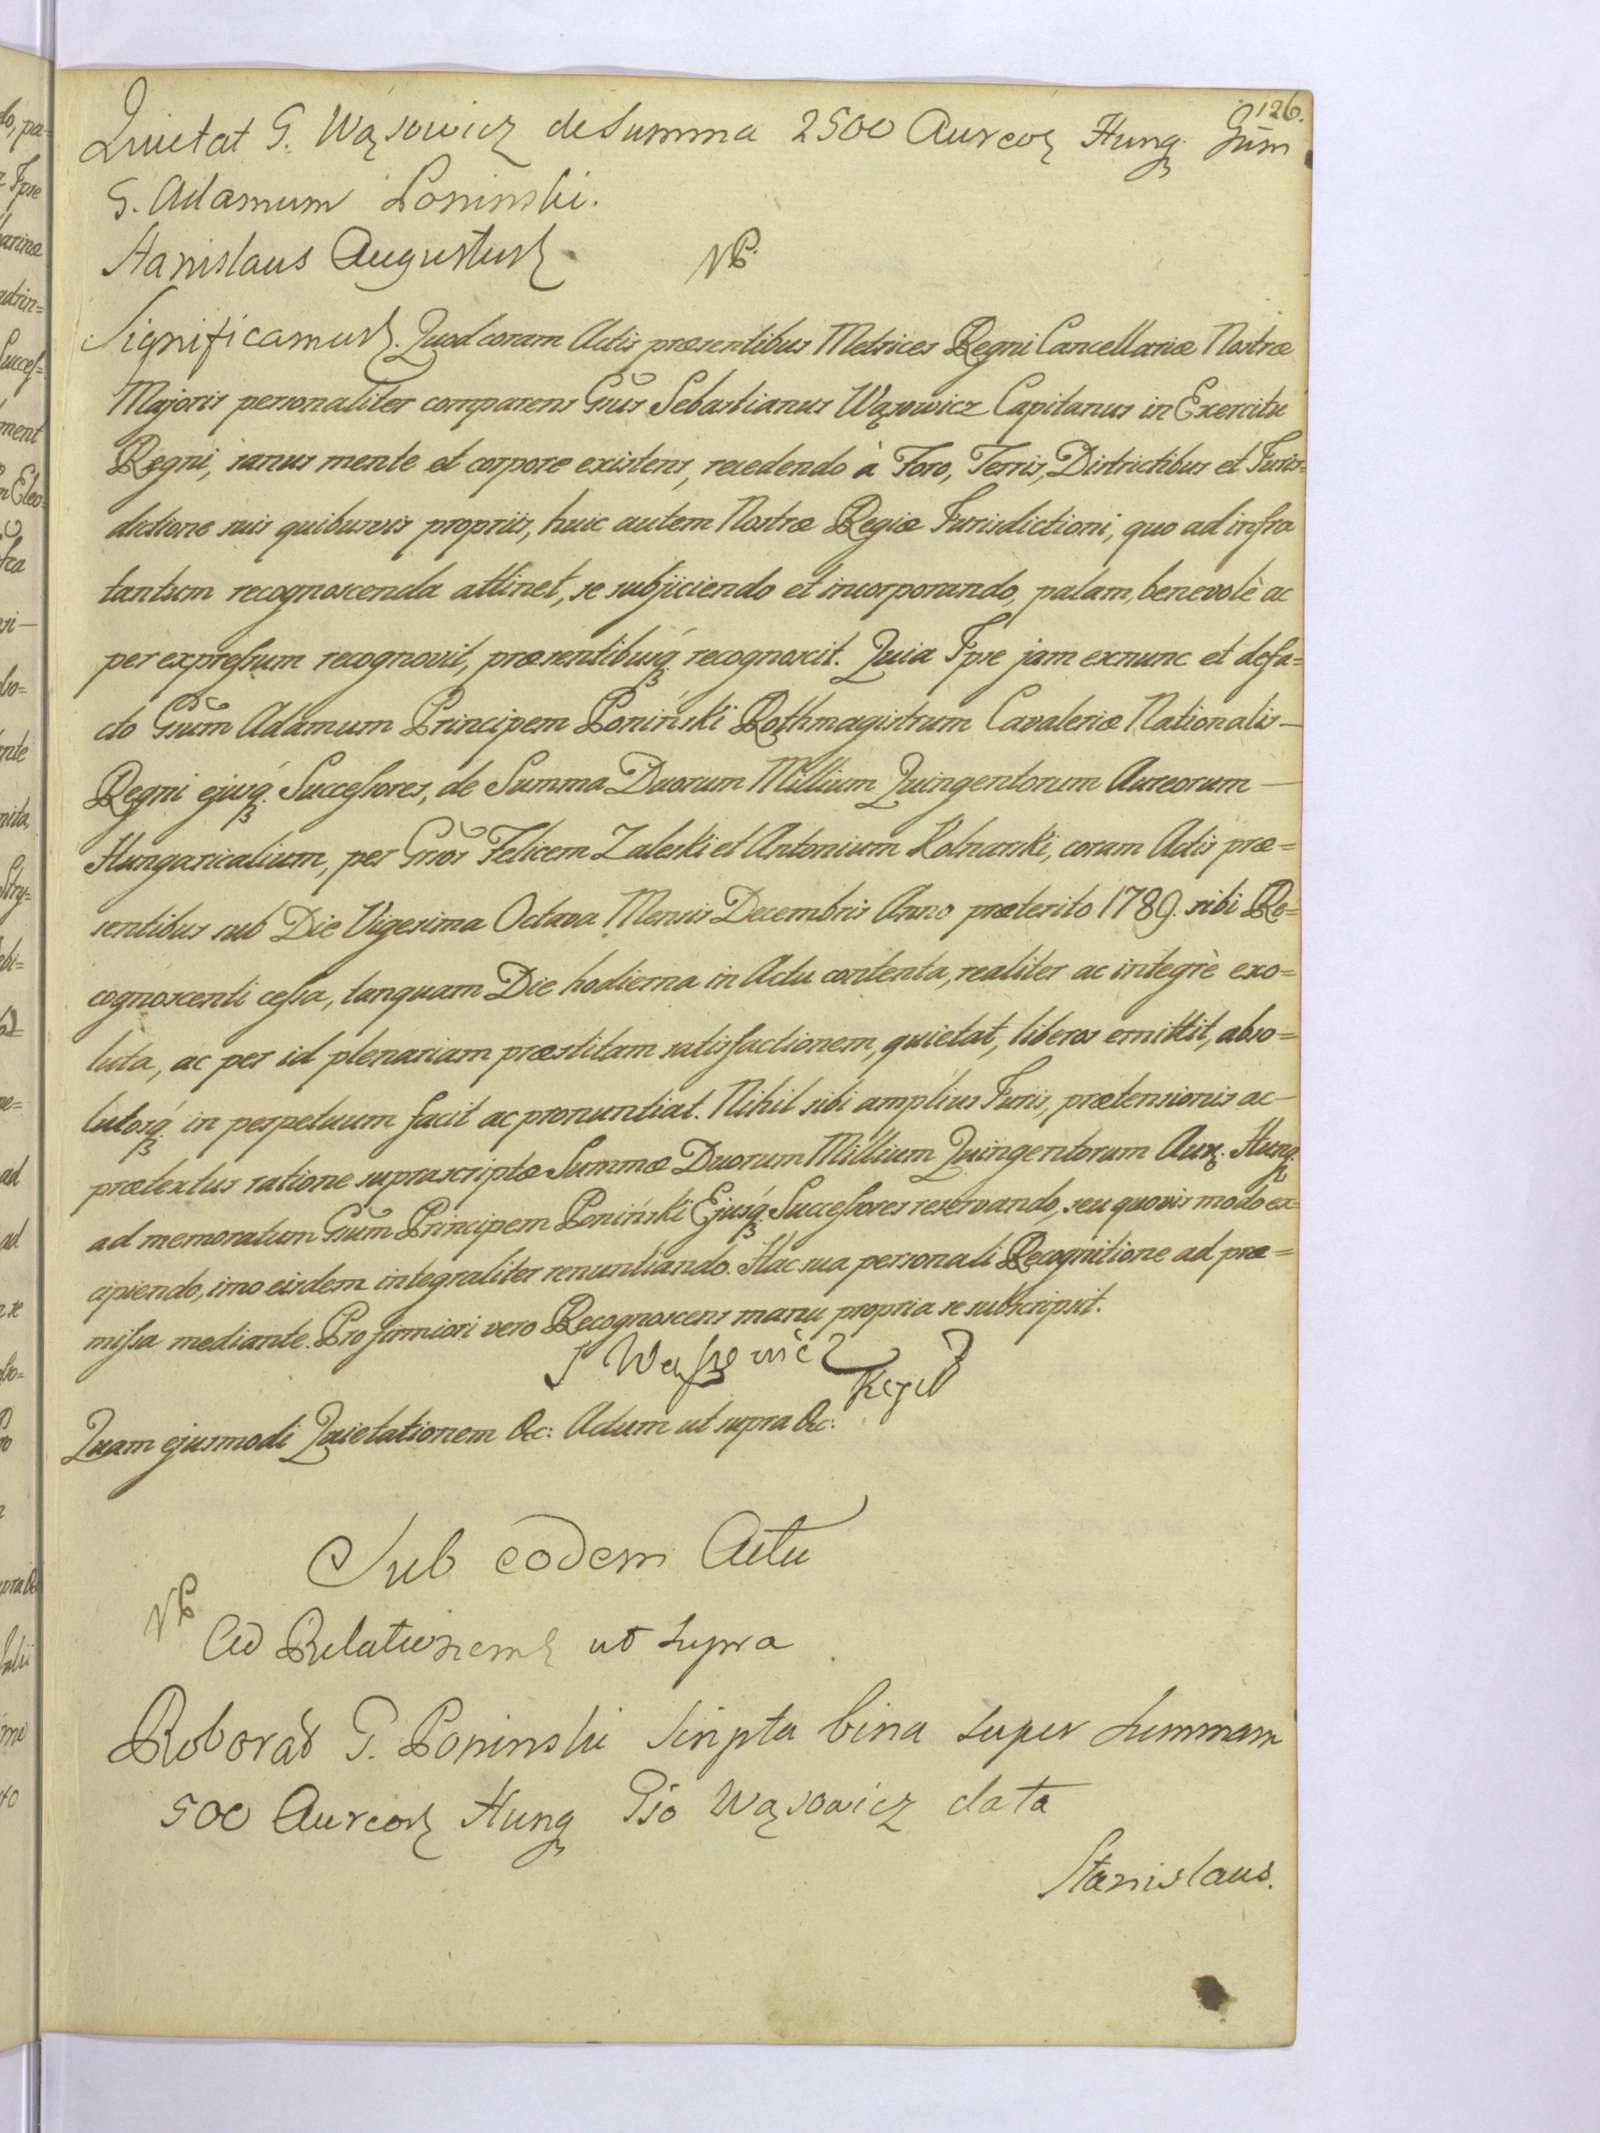 126.
Quietat G. Wąsowicz de Summa 2500 Aureoꝝ Hung. Gum
G. Adamum Poninski.
Stanislaus Augustusꝝ
NB.
Significamusꝝ. Quod coram Actis præsentibus Metrices Regni Cancellariæ Nostræ
Majoris personaliter comparens Gsus Sebastianus Wąsowicz Capitanus in Exercitu
Regni, sanus mente et corpore existens, recedendo à Foro, Terris, Districtibus et Juris=
dictione suis quibusvis propriis, huic autem Nostræ Regiæ Jurisdictioni, quo ad infra
tantum recognoscenda attinet, se subjiciendo et incorporando, palam, benevolè ac
per expressum recognovit, præsentibusq́ꝫ recognoscit. Quia Ipse jam exnunc et defa=
cto Gsum Adamum Principem Poniński Rothmagistrum Cavaleriæ Nationalis—
Regni ejusq́ꝫ Successores, de Summa Duorum Millium Quingentorum Aureorum—
Hungaricalium, per Gsos Felicem Zaleski et Antonium Kolnarski, coram Actis præ=
sentibus sub Die Vigesima Octava Mensis Decembris Anno præterito 1789. sibi Re=
cognoscenti cessa, tanquam Die hodierna in Actu contenta, realiter ac integrè exo=
luta, ac per id plenariam præstitam satisfactionem, quietat, liberos emittit, abso=
lutosq́ꝫ in perpetuum facit ac pronuntiat. Nihil sibi amplius Juris, prætensionis ac—
prætextus ratione suprascriptæ Summæ Duorum Millium Quingentorum Aurꝫ. Hung.
ad memoratum Gsum Principem Poniński Ejusq́ꝫ Successores reservando, seu quovis modo ex=
cipiendo, imo eisdem integraliter renuntiando. Hac sua personali Recognitione ad præ=
missa mediante. Pro firmiori vero Recognoscens manu propria se subscripsit.
S Wąssowicz
Quam ejusmodi Quietationem &c: Actum ut supra &c:
Sub eodem Actu
NB
Ad Relationemꝝ ut supra
Roborat G. Poninski Scripta bina super Summam
500 Aureoꝝ Hung Gso Wąsowicz data
Stanislaus.